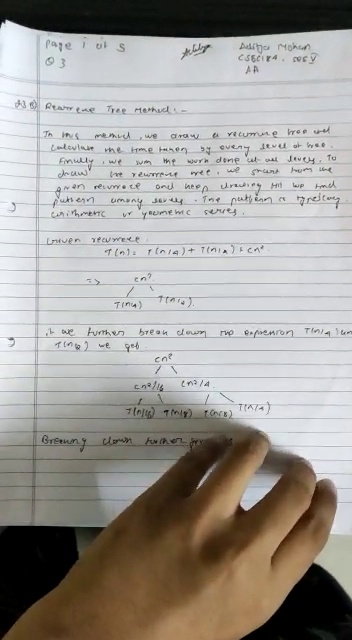 Page 1 of 5
Aditya Mohan
Q 3
CSE
AA
Recurrence Tree Method :-
In this method, we draw a recurrence tree and
calculate the time taken by every level of tree.
Finally, we sum the work done at all levels. To
draw the recurrence tree, we start from the
given recurrence and keep drawing till we find
pattern among levels. The pattern is typically
arithmetic or geometric series.
Given recurrence
T(n) = T(n/4) + T(n/2) + cn²
=> cn²
T(n/4) T(n/2)
if we further break down the expression T(n/4) and
T(n/2) we get.
cn²
cn²/16 cn²/4
T(n/16) T(n/8) T(n/8) T(n/4)
Breaking down further